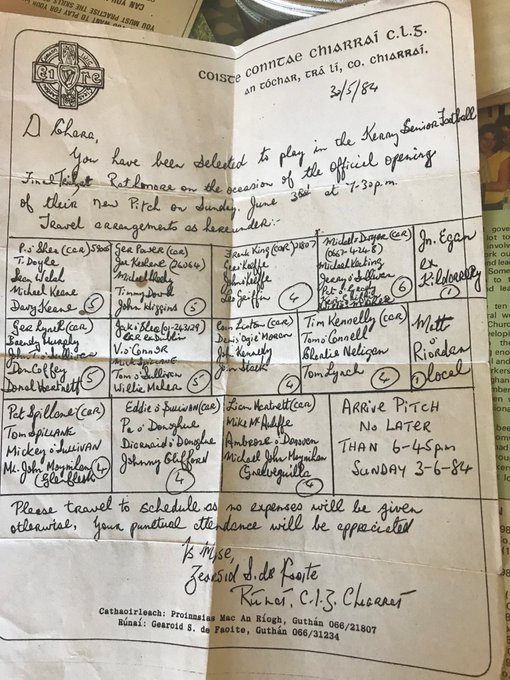 YOU MUST PRACTISE THE SKILLS
COISTE CONNTAE CHIARRAÍ C.L.G.
AN TÓCHAR, TRÁ LÍ, CO. CHIARRAÍ.
30/5/84
A Chara,
You have been selected to play in the Kerry Senior Football
Final Trial at Rathmore on the occasion of the official opening
of their new Pitch on Sunday June 3rd at 7-30p.m.
Travel arrangements as hereunder:-
P. O'Shea (CAR)
T. Doyle
Sean Walsh
Michael Keane
Davy Keane 5
Ger Power (CAR)
Joe Keohane (26064)
Timmy Dowd
John Higgins 5
Frank King (CAR) 21807
Ger O'Keeffe
John O'Keeffe
Leo Griffin 4
Michael O'Dwyer (CAR)
(0667-4248)
Michael Keating
Jerome O'Sullivan
6
Jn. Egan
ex
Kildorrery
1
Ger Lynch (CAR)
Brendy Murphy
John T. O'Sullivan
Don Coffey
Donal Hartnett 5
Jack O'Shea (01-243129)
CAR ex DUBLIN
V. O'Connor
Mick Spillane
Tom O'Sullivan
Willie Maher 5
Eoin Liston (CAR)
Denis "Ogie" Moran
John Kennedy
Jim Stack 4
Tim Kennelly (CAR)
Tom O'Connell
Charlie Nelligan
Tom Lynch 4
Matt
O'Riordan
local
1
Pat Spillane (CAR)
Tom SPILLANE
Mickey O'Sullivan
Mr. John Moynihan
(Glenflesk) 4
Eddie O'Sullivan (CAR)
Pa O'Donoghue
Diarmaid O'Donoghue
Johnny Clifford
4
Liam Hartnett (CAR)
Mike McAuliffe
Ambrose O'Donovan
Michael John Moynihan
Gneeveguilla
4
ARRIVE PITCH
NO LATER
THAN 6-45pm
SUNDAY 3-6-84
Please travel to schedule as no expenses will be given
otherwise. Your punctual attendance will be appreciated
Is Mise,
Gearóid S. de Faoite
Rúnaí, C.L.G. Chiarraí
Cathaoirleach: Proinnsias Mac An Ríogh, Guthán 066/21807
Rúnaí: Gearoid S. de Faoite, Guthán 066/31234